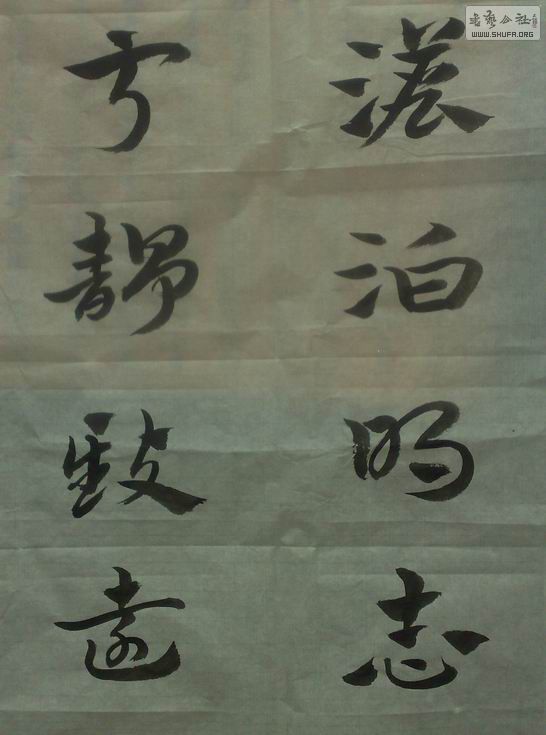 淡泊明志
宁靜致遠
書藝公社
WWW.SHUFA.ORG